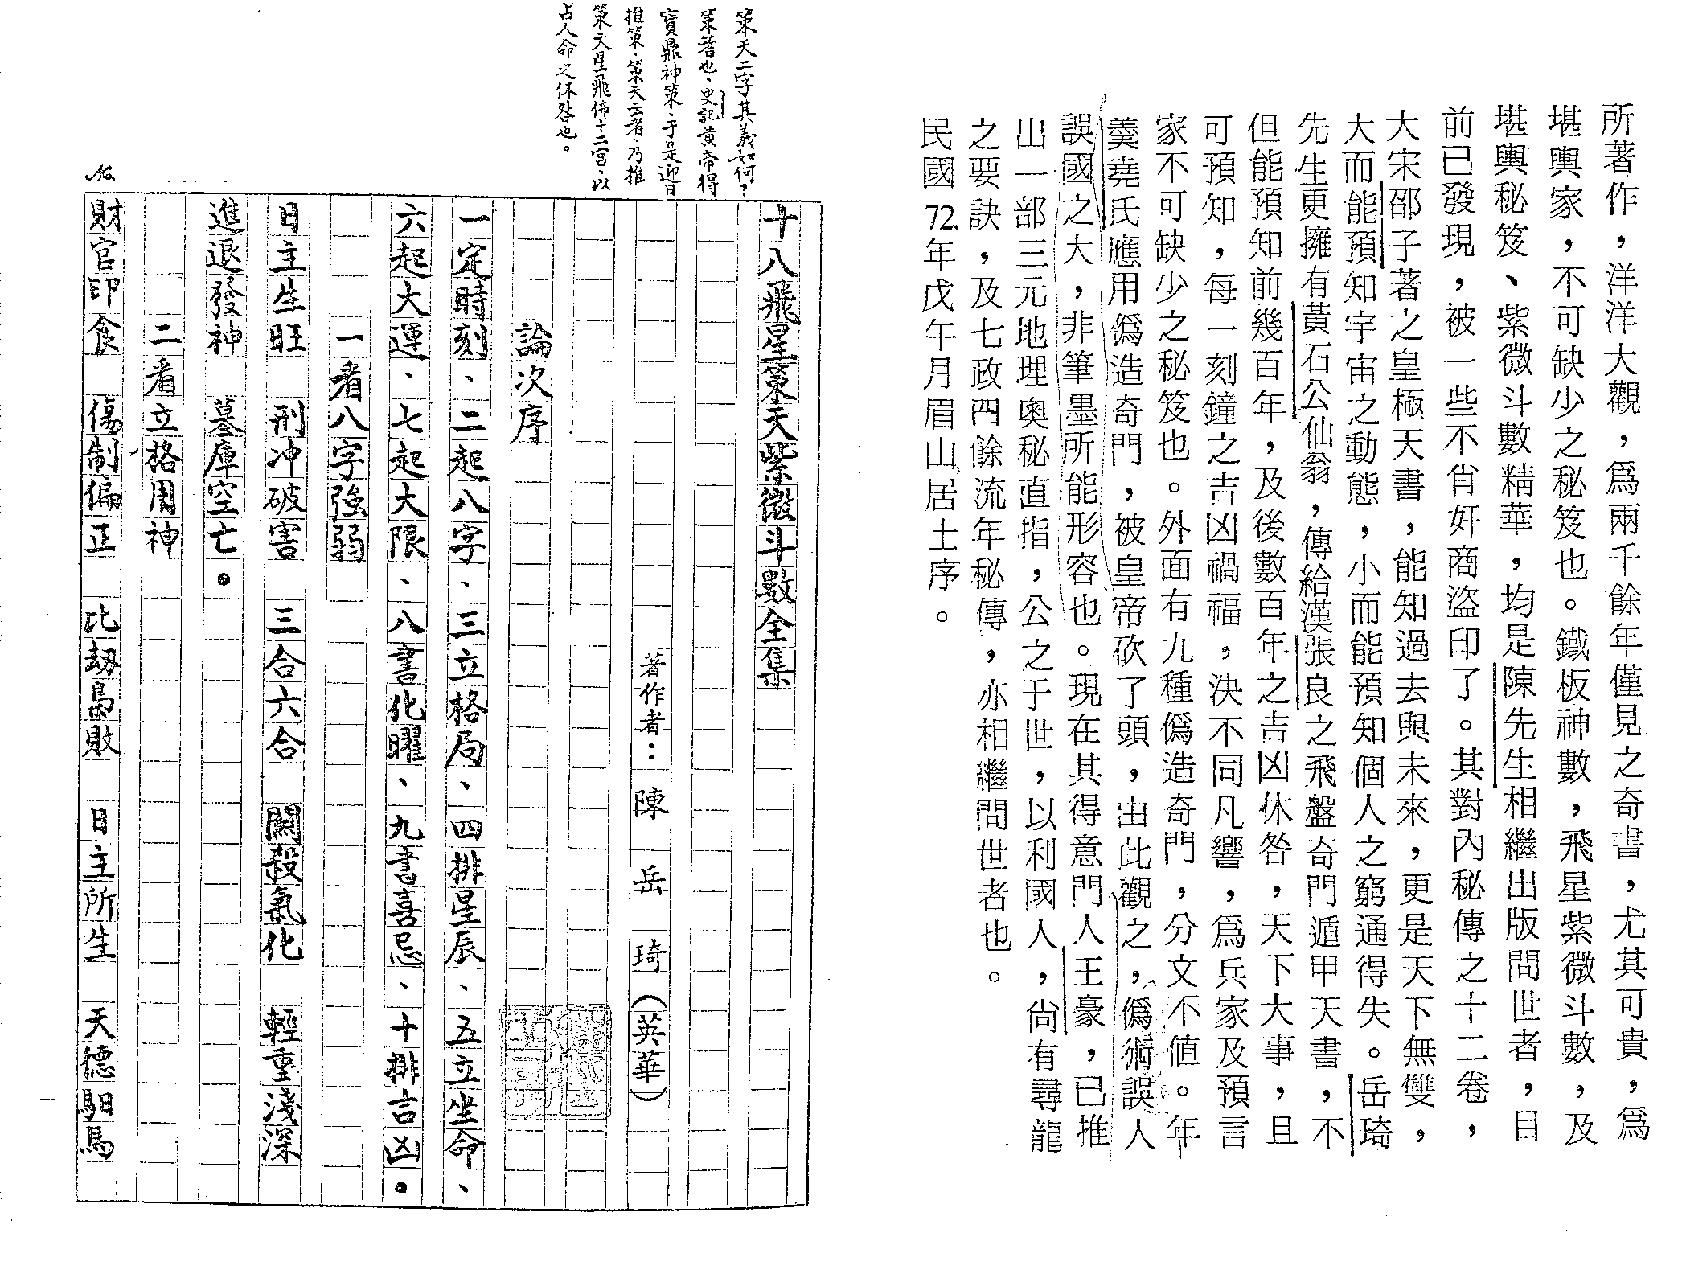 所著作，洋洋大觀，爲兩千餘年僅見之奇書，尤其可貴，爲
堪輿家，不可缺少之秘笈也。鐵板神數，飛星紫微斗數，及
堪輿秘笈、紫微斗數精華，均是陳先生相繼出版問世者，日
前已發現，被一些不肖奸商盜印了。其對內秘傳之十二卷，
大宋邵子著之皇極天書，能知過去與未來，更是天下無雙，
大而能預知宇宙之動態，小而能預知個人之窮通得失。岳琦
先生更擁有黃石公仙翁，傳給漢張良之飛盤奇門遁甲天書，不
但能預知前幾百年，及後數百年之吉凶休咎，天下大事，且
可預知，每一刻鐘之吉凶禍福，決不同凡響，爲兵家及預言
家不可缺少之秘笈也。外面有九種僞造奇門，分文不值。年
羹堯氏應用僞造奇門，被皇帝砍了頭，由此觀之，僞術誤人
誤國之大，非筆墨所能形容也。現在其得意門人王豪，已推
出一部三元地理奧秘直指，公之于世，以利國人，尚有尋龍
之要訣，及七政四餘流年秘傳，亦相繼問世者也。
民國72.年戊午月眉山居士序。
策天二字其義如何？
策蓍也、史記黃帝得
寶鼎神策、于是迎日
推策、策天云者、乃推
策文星飛佈十二宮、以
占人命之休咎也。
十八飛星策天紫微斗數全集
著作者：陳岳琦（英華）
論次序
一定時刻、二起八字、三立格局、四排星辰、五立坐命、
六起大運、七起大限、八書化曜、九書喜忌、十排吉凶。
一看八字強弱
日主生旺 刑冲破害 三合六合 關殺氣化 輕重淺深
進退發神 墓庫空亡。
二看立格用神
財官印食 傷制偏正 比刼梟敗 日主所生 天德馹馬